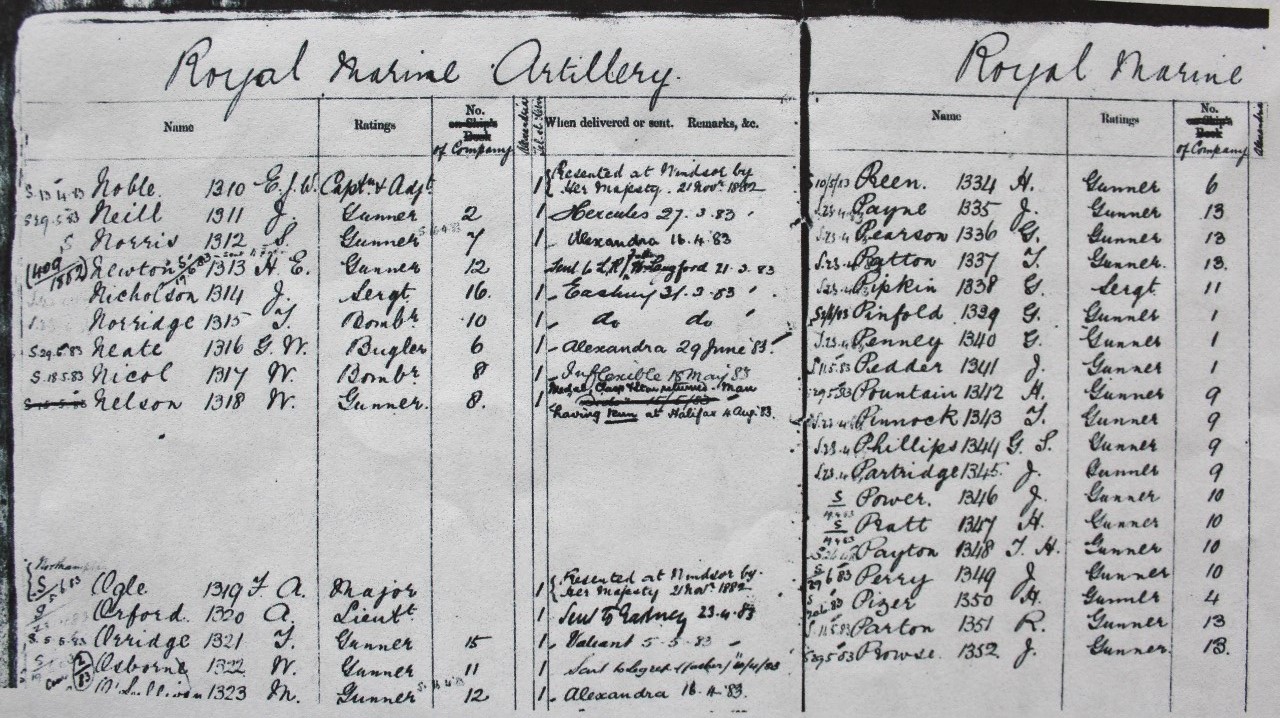 Royal Marine Artillery.
Name Ratings No. on Ship's Book of Company Alexandria Tel-el-Kebir When delivered or sent. Remarks, &c.
S.13.4.83 Noble 1310 E.J.W. Captn & Adjt 1 Presented at Windsor by
Her Majesty. 21 Novr. 1882
S29.5.83 Neill 1311 J. Gunner 2 1 Hercules 27.3.83
S Norris 1312 S. Gunner 7 1 Alexandra 16.4.83
(409/1882) Newton 1313 H.E. Gunner 12 1 Sent to Langford 21.3.83
Nicholson 1314 J. Sergt 16. 1 Eastney 31.3.83
Norridge 1315 T. Bombr 10 1 do do
S29.5.83 Neate 1316 G.W. Bugler 6 1 Alexandra 29 June 83.
S.18.5.83 Nicol 1317 W. Bombr 8 1 Inflexible 18 May 83
Nelson 1318 W. Gunner 8. 1 Medal, Clasp & Star returned - Man
having run at Halifax 4 Aug. 83.
S 5/6/83 Ogle 1319 F.A. Major 1 Presented at Windsor by
Her Majesty 21 Novr. 1882
Orford 1320 A. Lieut 1 Sent to Eastney 23.4.83
S.5.5.83 Orridge 1321 T. Gunner 15 1 Valiant 5.5.83
Osborne 1322 W. Gunner 11 1 Sent to
O'Sullivan 1323 M. Gunner 12 1 Alexandra 16.4.83.
Royal Marine
Name Ratings No. on Ship's Book of Company Alexandria
S10/5/83 Preen. 1334 H. Gunner 6
Payne 1335 J. Gunner 13
Pearson 1336 G. Gunner 13
Patton 1337 T. Gunner 13.
Pipkin 1338 G. Sergt 11
Pinfold 1339 G. Gunner 1
Penney 1340 G. Gunner 1
S11.5.83 Pedder 1341 J. Gunner 1
Pountain 1342 H. Gunner 9
Pinnock 1343 T. Gunner 9
Phillips 1344 G.S. Gunner 9
Partridge 1345. J. Gunner 9
S Power. 1346 J. Gunner 10
S Pratt 1347 H. Gunner 10
Payton 1348 T.H. Gunner 10
S 29/6/83 Perry 1349 J. Gunner 10
Pizer 1350 H. Gunner 4
S.11.5.83 Parton 1351 R. Gunner 13
S29.5.83 Prowse. 1352 J. Gunner 13.